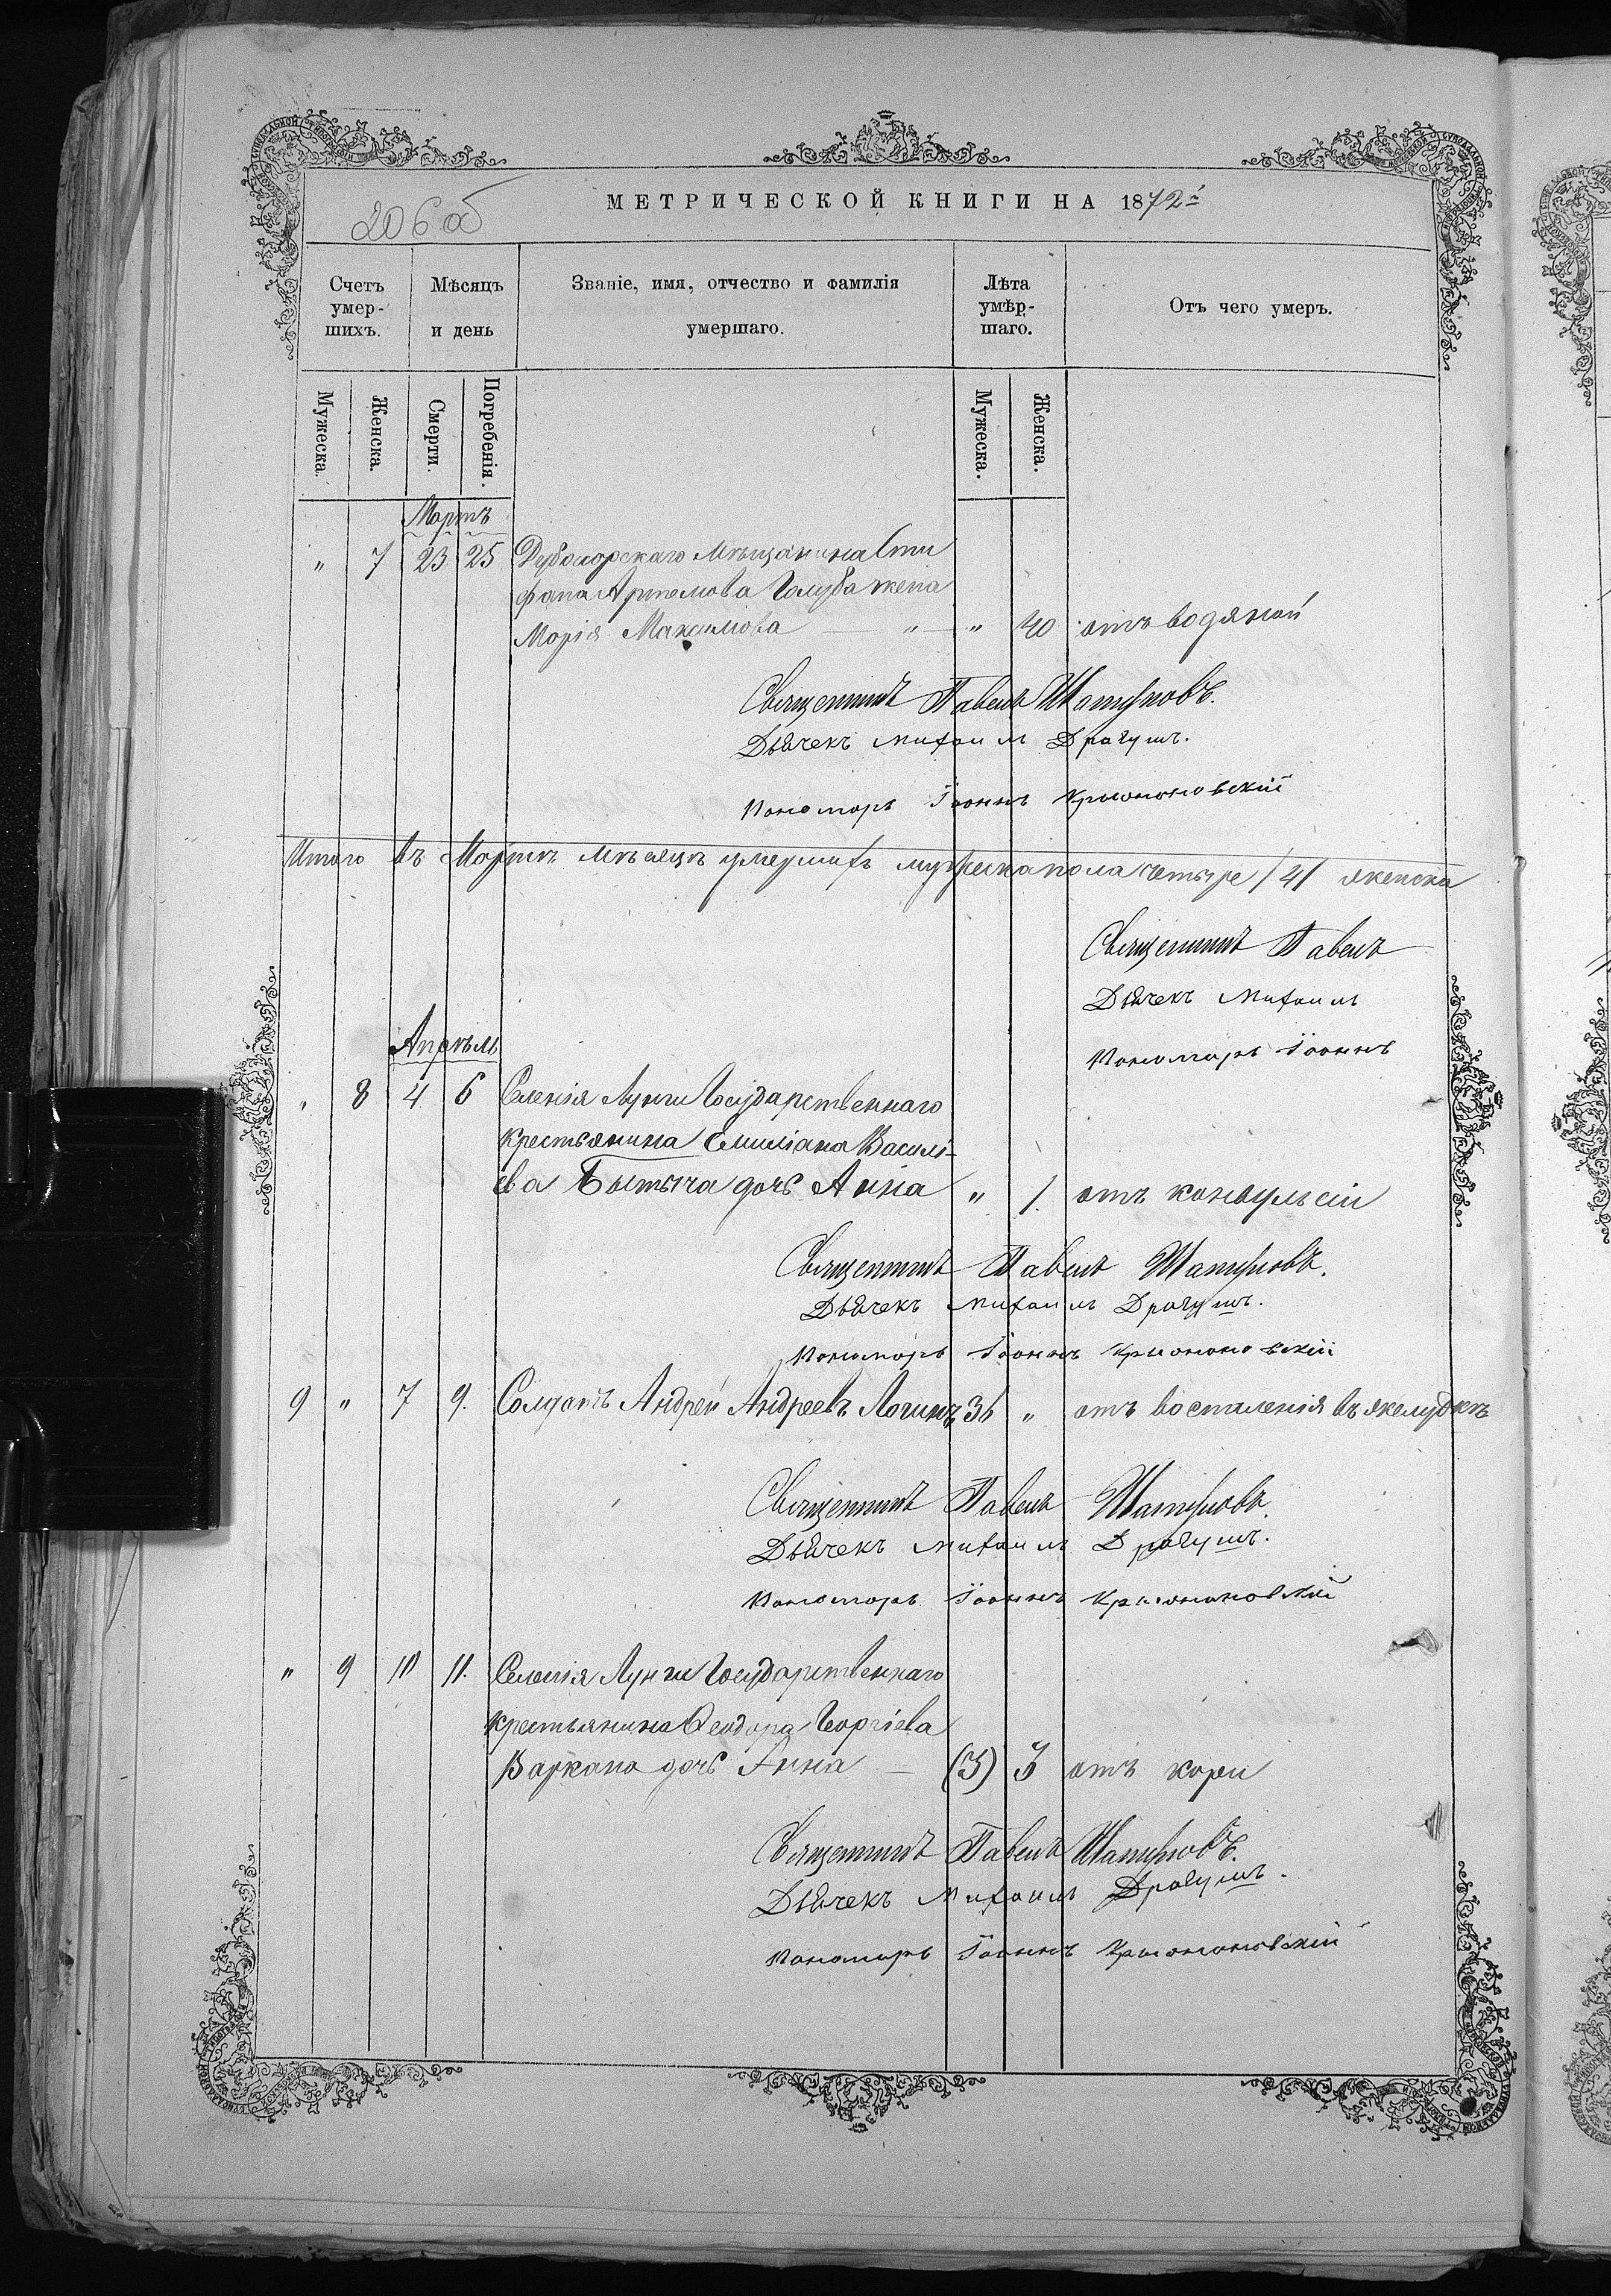 206 об
МЕТРИЧЕСКОЙ КНИГИ НА 1872й
Счетъ умер-шихъ.
Мѣсяцъ и день
Званіе, имя, отчество и фамилія умершаго.
Лѣта умѣр-шаго.
Отъ чего умеръ.
Мужеска.
Женска.
Смерти.
Погребенія.
Мужеска.
Женска.
Мартъ
" 7 23 25 Дубосарскаго Мѣщанина Сти
фана Артемова Голуба жена
Марія Максимова — " — " 40 отъ водяной
Священникъ Павелъ
Дьячекъ Михаилъ Драгушъ.
Пономарь Іоаннъ
Итого въ Мартѣ мѣсяцѣ умершихъ мужеска пола четыре /4/ женска
Священникъ Павелъ
Дьячекъ Михаилъ
Пономарь Іоаннъ
Апрѣль
" 8 4 6 Селенія Лунги Государственнаго
крестьянина Емиліана Василі-
ева дочь Анна " 1. отъ конвульсіи
Священникъ Павелъ
Дьячекъ Михаилъ Драгушъ.
Пономарь Іоаннъ
9 " 7 9. Солдатъ Андрей Андреевъ Логинъ 36 " отъ воспаленія въ желудкѣ
Священникъ Павелъ
Дьячекъ Михаилъ Драгушъ.
Пономарь Іоаннъ
" 9 10 11. Селенія Лунги Государственнаго
крестьянина Ѳеодора Георгіева
Варкана дочь Анна — (3) 3 отъ кори
Священникъ Павелъ
Дьячекъ Михаилъ Драгушъ.
Пономарь Іоаннъ